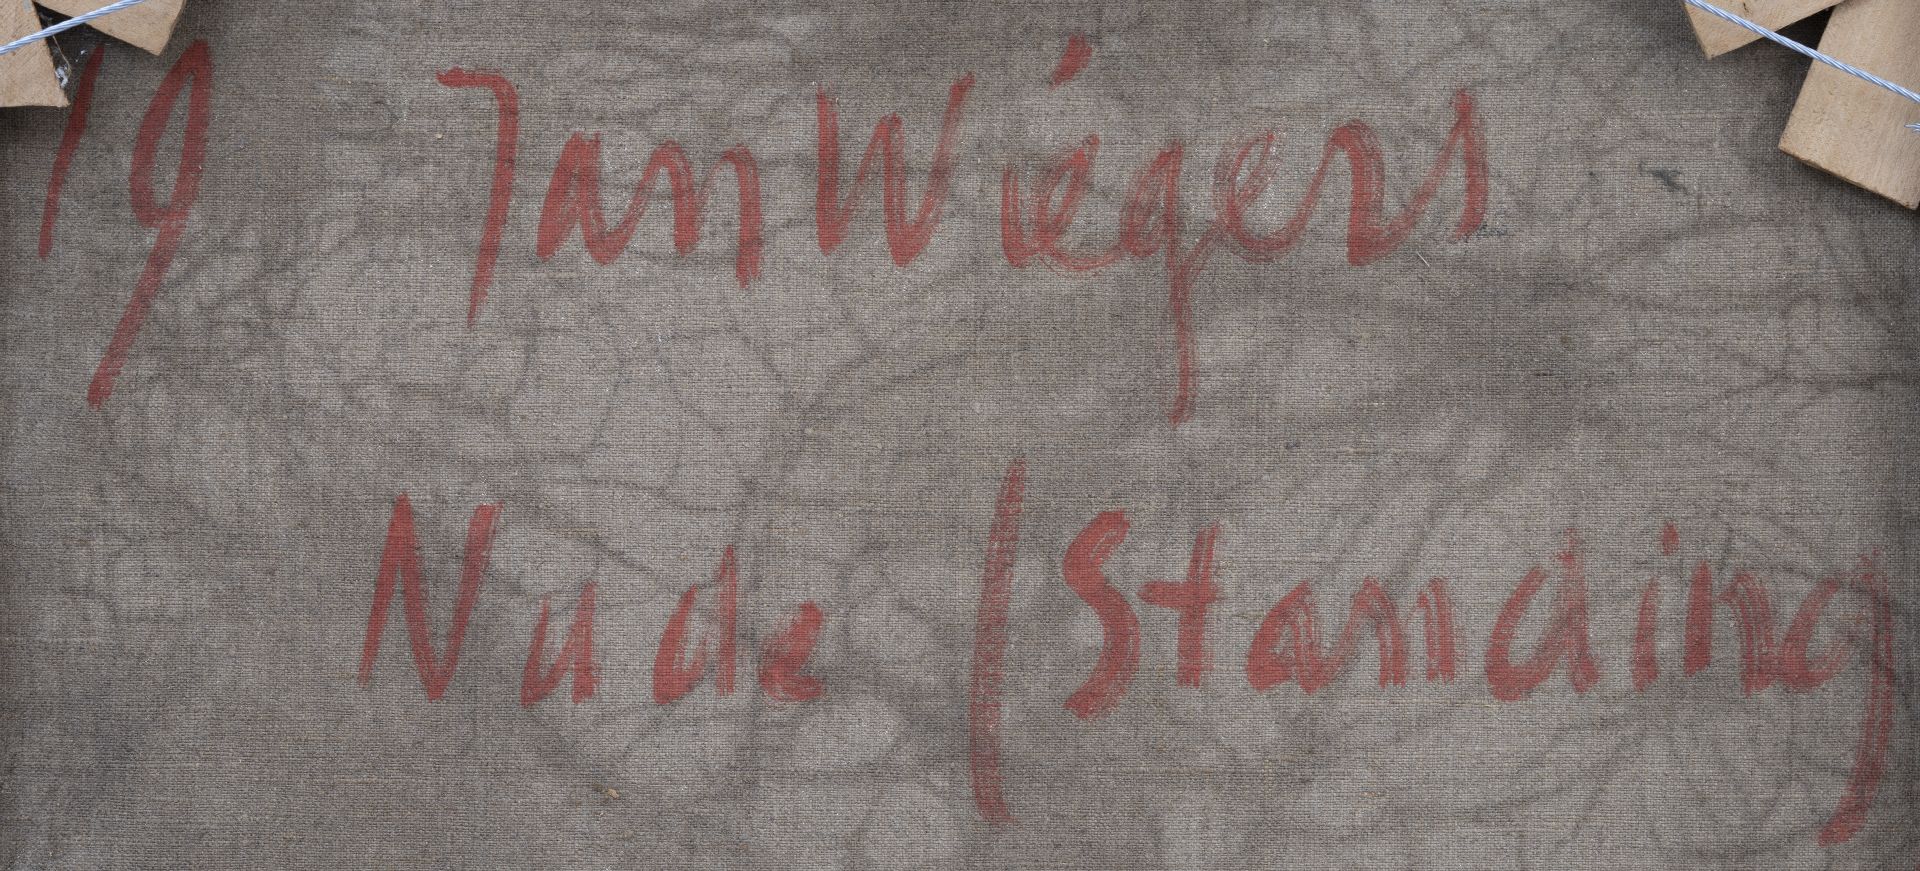 19 Jan Wiegers
Nude (Standing)